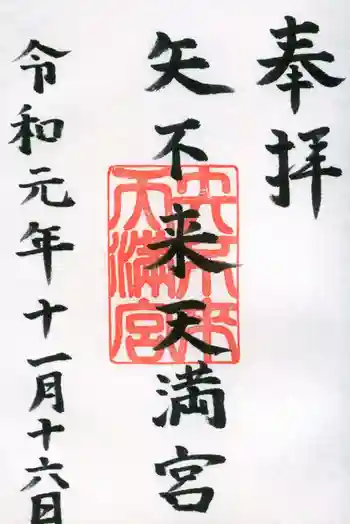 奉拝
矢不来天満宮
矢不来天満宮
令和元年十一月十六日